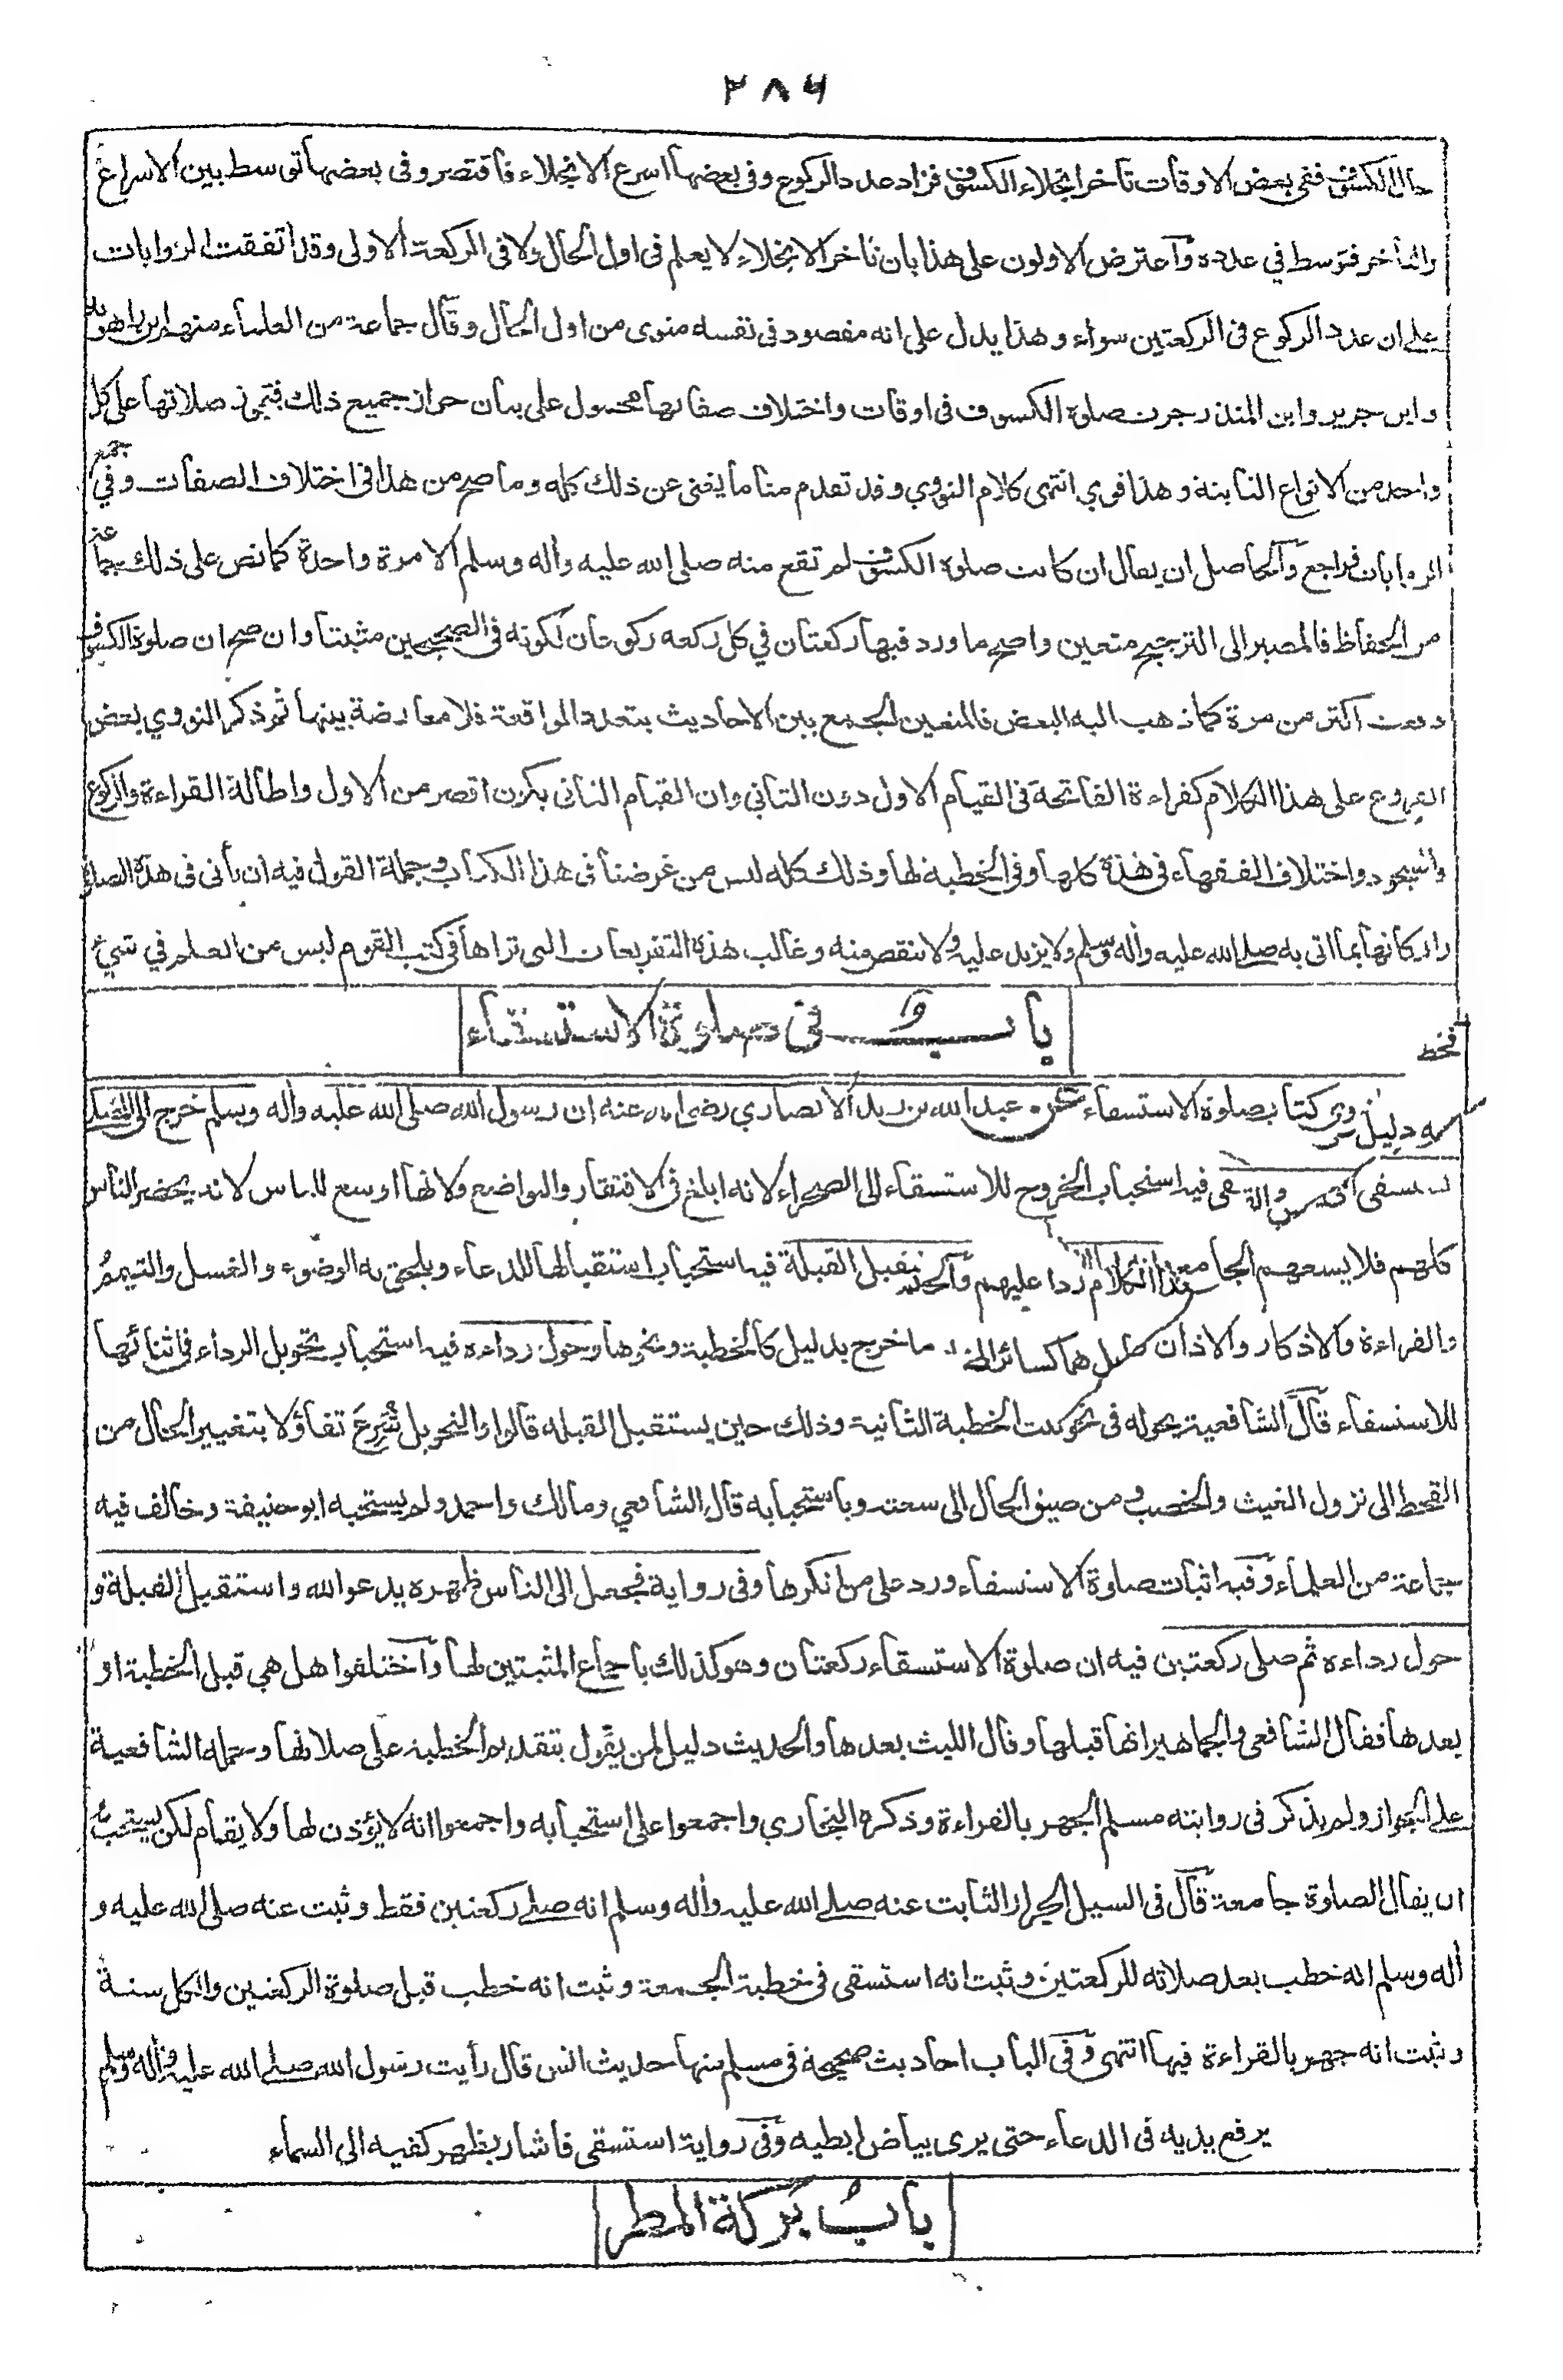 ٢٨٦
حال الكسوف ففى بعض الاوقات تأخر انجلاء الكسوف فزاد عدد الركوع وفى بعضها اسرع الانجلاء فاقتصر وفى بعضها توسط بين الاسراع
والتأخر فتوسط في عدده وآعترض الاولون على هذا بان تأخر الانجلاء لا يعلم فى اول الحال ولا فى الركعة الاولى وقد اتفقت الروايات
على ان عدد الركوع فى الركعتين سواء وهذا يدل على انه مقصود فى نفسه منوى من اول الحال وقال جماعة من العلماء منهم ابن راهويه
وابن جرير وابن المنذر جرت صلوة الكسوف فى اوقات واختلاف صفاتها محمول على بيان جواز جميع ذلك فتجوز صلاتها على كل
واحد من الانواع الثابتة وهذا قوي انتهى كلام النووي وقد تقدم منا ما يغنى عن ذلك كله وما صح من هذا فى اختلاف الصفات وفي جمع
الروايات فراجع وآلحاصل ان يقال ان كانت صلوة الكسوف لم تقع منه صلى الله عليه وأله وسلم الا مرة واحدة كما نص على ذلك جماعة
من الحفاظ فالمصير الى الترجيح متعين واصح ما ورد فيها ركعتان في كل ركعه ركوعان لكونه فى الصحيحين مثبتا وان صح ان صلوة الكسوف
وقعت اكثر من مرة كما ذهب اليه البعض فالمتعين الجمع بين الاحاديث بتعدد الواقعة فلا معارضة بينها ثم ذكر النووي بعض
الفروع على هذا الكلام كقراءة الفاتحة فى القيام الاول دون الثاني وان القيام الثانى يكون اقصر من الاول واطالة القراءة والركوع
والسجود واختلاف الفقهاء فى هذة كلها وفى الخطبة لها وذلك كله ليس من غرضنا فى هذا الكتاب وجملة القول فيه ان يأتى فى هذة الصلوة
واركانها بما اتى به صلى الله عليه وأله وسلم ولا يزيد عليه ولا ينقص منه وغالب هذة التفريعات التى تراها فى كتب القوم ليس من العلم في شيء
باب فى صلوة الاستسقاء
فخط
كتاب صلوة الاستسقاء عن عبد الله بن زيد الانصاري رضى الله عنه ان رسول الله صلى الله عليه وأله وسلم خرج الى المصلى
يستسقى فيه استحباب الخروج للاستسقاء الى الصحراء لانه ابلغ فى الافتقار والتواضع ولانها اوسع للناس لانه يحضر الناس
كلهم فلا يسعهم الجامع استقبل القبلة فيه استحباب استقبالها للدعاء ويلحق به الوضوء والغسل والتيمم
والقراءة والاذكار والاذان كسائر ما خرج بدليل كالخطبة ونحوها وحول رداءه فيه استحباب تحويل الرداء فى اثنائها
للاستسقاء قآل الشافعية يحوله فى نحو ثلث الخطبة الثانية وذلك حين يستقبل القبله قالوا والتحويل شُرِعَ تفاؤلا بتغيير الحال من
القحط الى نزول الغيث والخصب ومن ضيق الحال الى سعته وباستحبابه قال الشافعي ومالك واحمد ولم يستحبه ابو حنيفة وخالف فيه
جماعة من العلماء وفيه اثبات صلوة الاستسقاء ورد على من انكرها وفى رواية فجعل الى الناس ظهره يدعو الله واستقبل القبلة و
حول رداءه ثم صلى ركعتين فيه ان صلوة الاستسقاء ركعتان وهو كذلك باجماع المثبتين لها وآختلفوا هل هي قبل الخطبة او
بعدها فقال الشافعى والجماهير انها قبلها وقال الليث بعدها والحديث دليل لمن يقول بتقديم الخطبة على صلاتها وحمله الشافعية
على الجواز ولم يذكر فى روايته مسلم الجهر بالقراءة وذكرة البخاري واجمعوا على استحبابه واجمعوا انه لا يؤذن لها ولا يقام لكن يستحب
ان يقال الصلوة جامعة قآل فى السيل الجرار الثابت عنه صلى الله عليه وأله وسلم انه صلى ركعتين فقط وثبت عنه صلى الله عليه و
أله وسلم انه خطب بعد صلاته للركعتين وثبت انه استسقى فى خطبة الجمعة وثبت انه خطب قبل صلوة الركعتين والكل سنة
وثبت انه جهر بالقراءة فيها انتهى وفى الباب احاديث صحيحة فى مسلم منها حديث انس قال رأيت رسول الله صلى الله عليه وأله وسلم
يرفع يديه فى الدعاء حتى يرى بياض ابطيه وفى رواية استسقى فاشار بظهر كفيه الى السماء
باب بركة المطر